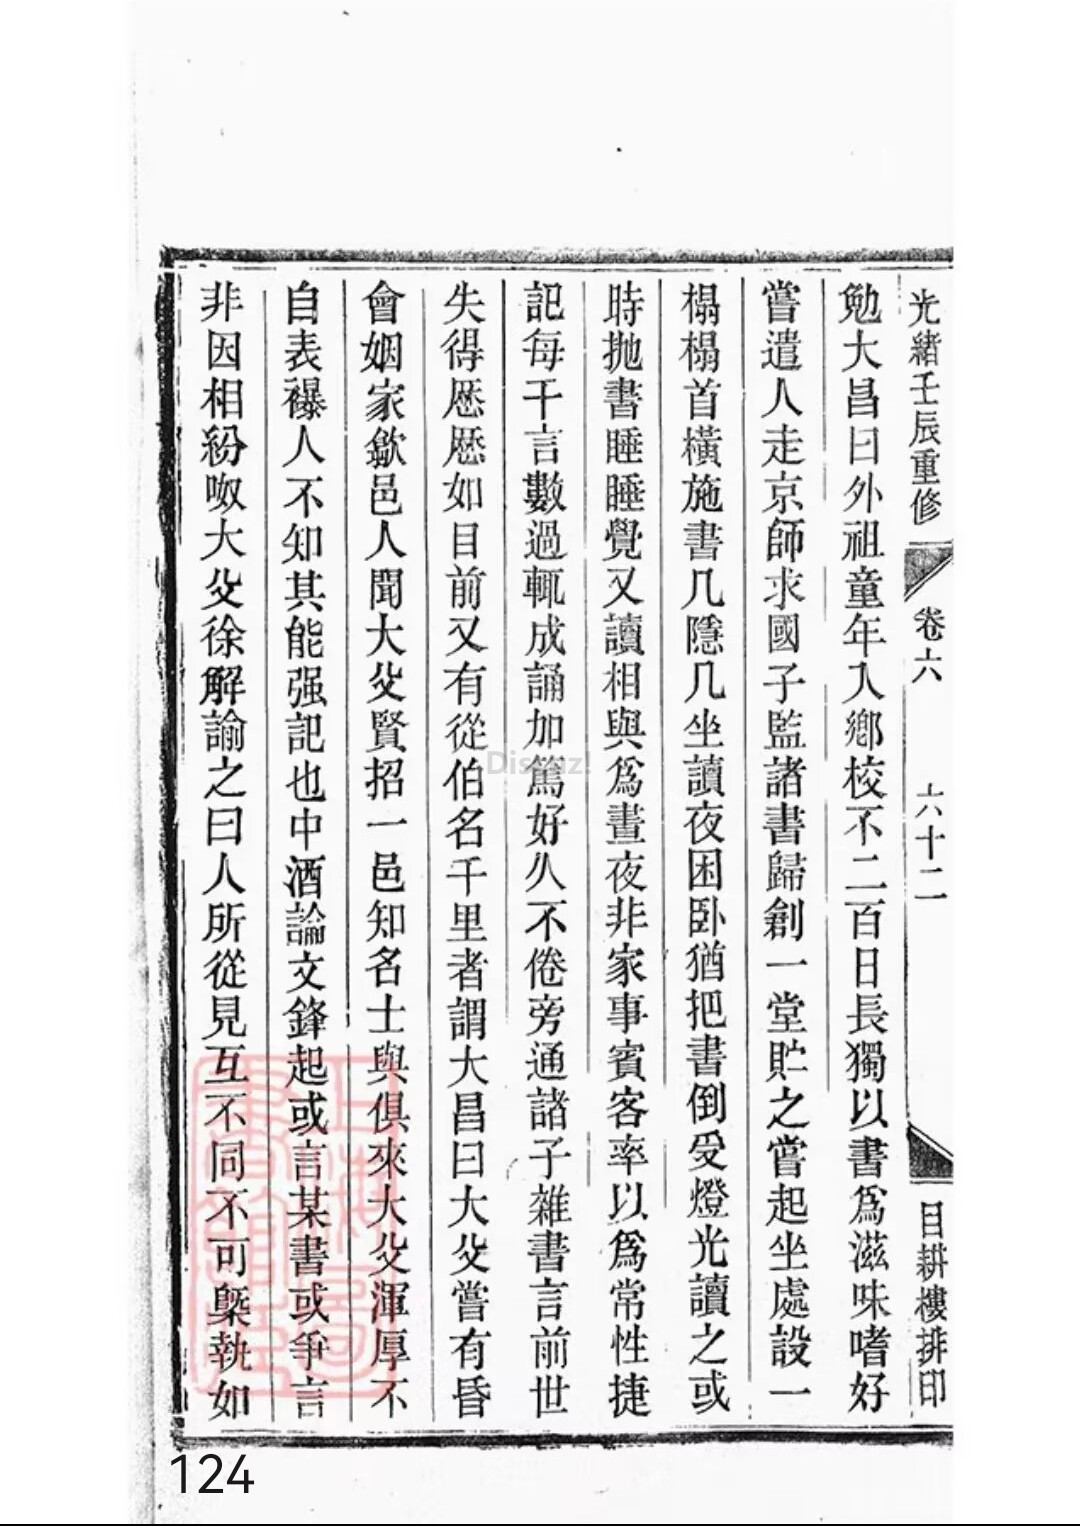 光緒壬辰重修 卷六 六十二 目耕樓排印
勉大昌曰外祖童年入鄉校不二百日長獨以書爲滋味嗜好
嘗遣人走京師求國子監諸書歸創一堂貯之嘗起坐處設一
榻榻首橫施書几隱几坐讀夜困卧猶把書倒受燈光讀之或
時拋書睡睡覺又讀相與爲晝夜非家事賓客率以爲常性捷
記每千言數過輒成誦加篤好久不倦旁通諸子雜書言前世
失得歷歷如目前又有從伯名千里者謂大昌曰大父嘗有昏
會姻家歙邑人聞大父賢招一邑知名士與俱來大父渾厚不
自表襮人不知其能强記也中酒論文鋒起或言某書或爭言
非因相紛呶大父徐解諭之曰人所從見互不同不可槩執如
Discuz!
124